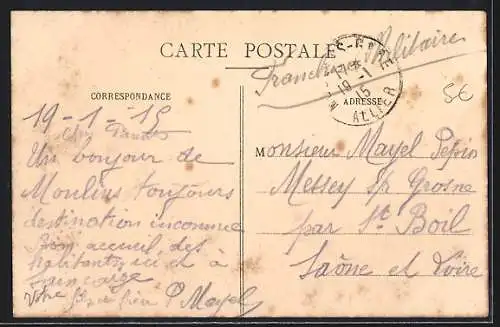 CARTE POSTALE
Franchise Militaire
MOULINS-GARE
19-1
15
ALLIER
CORRESPONDANCE
ADRESSE
5€
19-1-15
Un bonjour de
Moulins toujours
destination inconnue
Bon accueil des
habitants ici et à
Votre frère P Mayel
Monsieur Mayel Pepin
Messey s/p Grosne
par St Boil
Saône et Loire